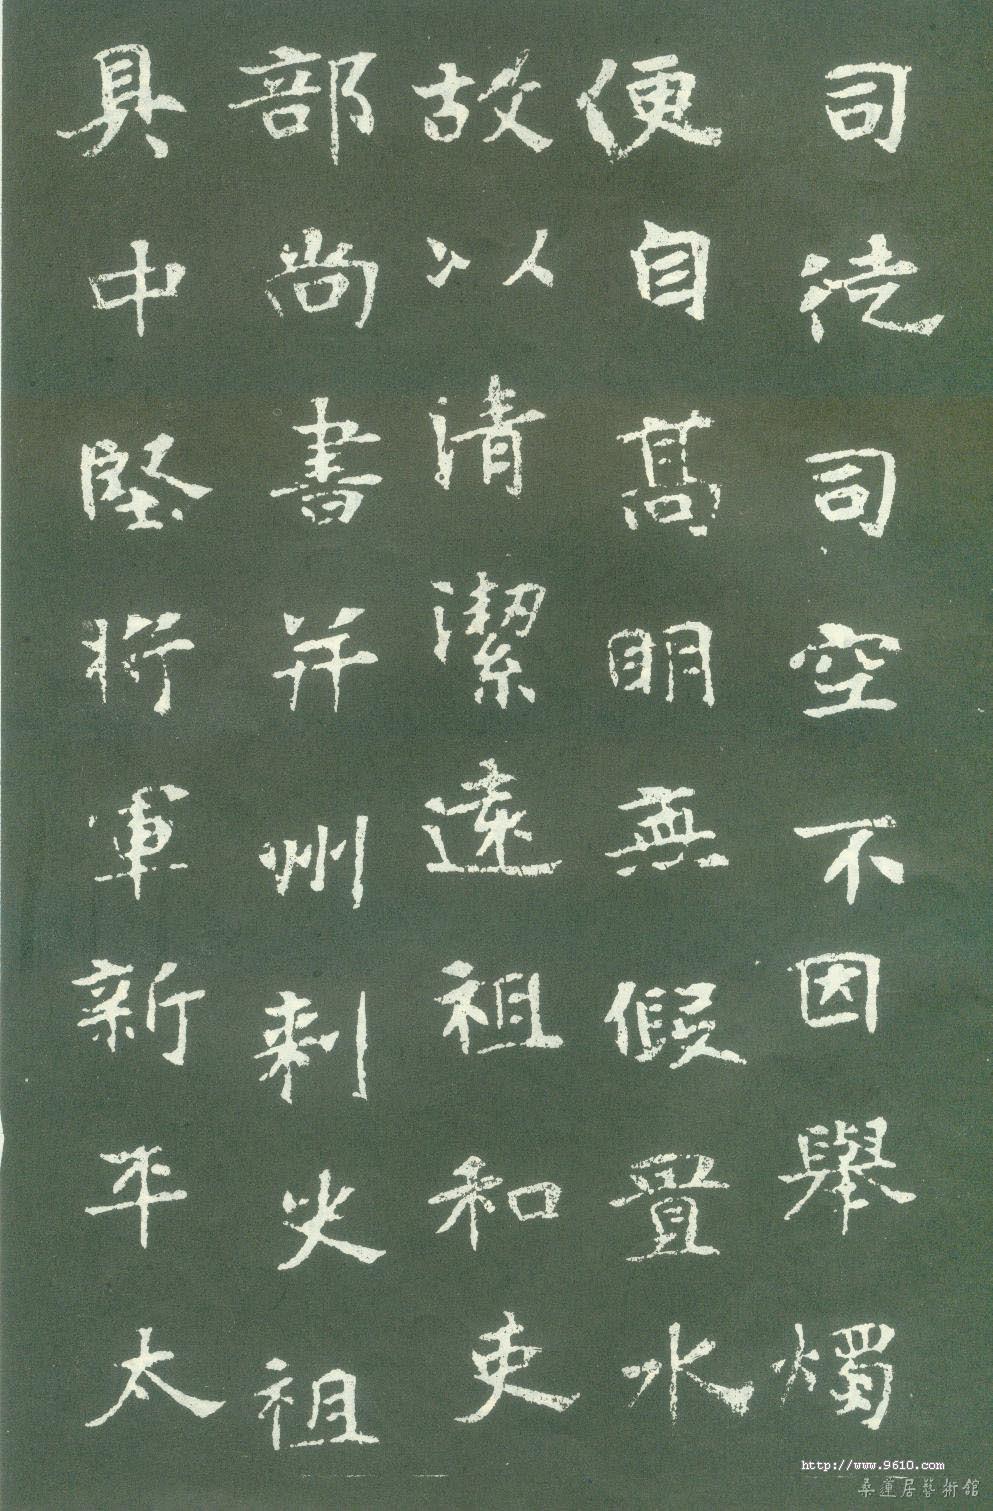 司徒司空不因舉燭
便自髙明無假置水
故以清潔遠祖和吏
部尚書并州刺史祖
具中堅將軍新平太
http://www.9610.com
桑蓮居藝術館